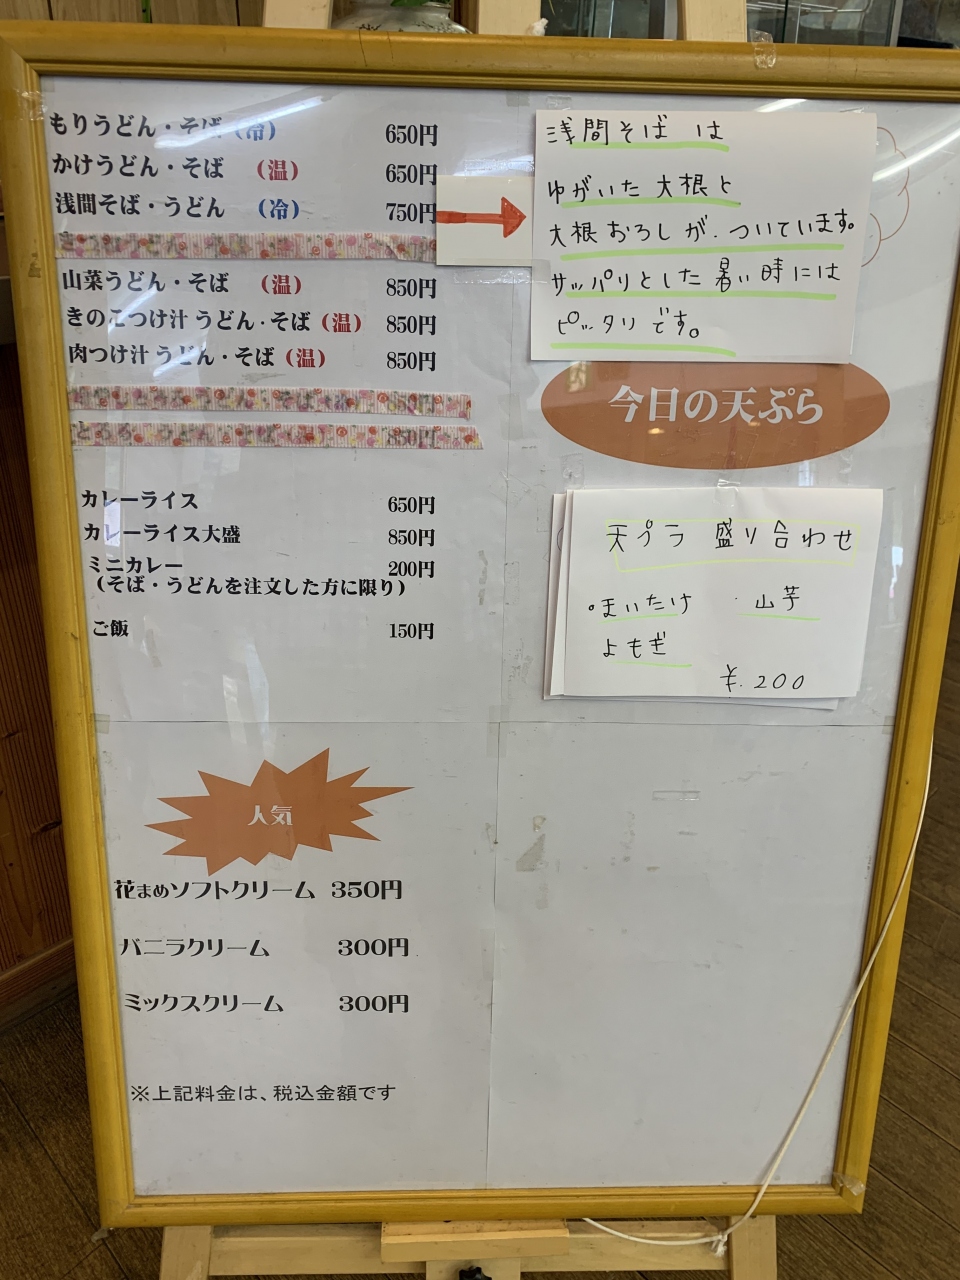 もりうどん・そば（冷） 650円
かけうどん・そば （温） 650円
浅間そば・うどん （冷） 750円
山菜うどん・そば （温） 850円
きのこつけ汁うどん・そば（温） 850円
肉つけ汁うどん・そば（温） 850円
850円
カレーライス 650円
カレーライス大盛 850円
ミニカレー 200円
（そば・うどんを注文した方に限り）
ご飯 150円
人気
花まめソフトクリーム 350円
バニラクリーム 300円
ミックスクリーム 300円
※上記料金は、税込金額です
浅間そば は
ゆがいた大根と
大根おろしが、ついています。
サッパリとした暑い時には
ピッタリです。
今日の天ぷら
天プラ 盛り合わせ
・まいたけ ・山芋
よもぎ
¥.200